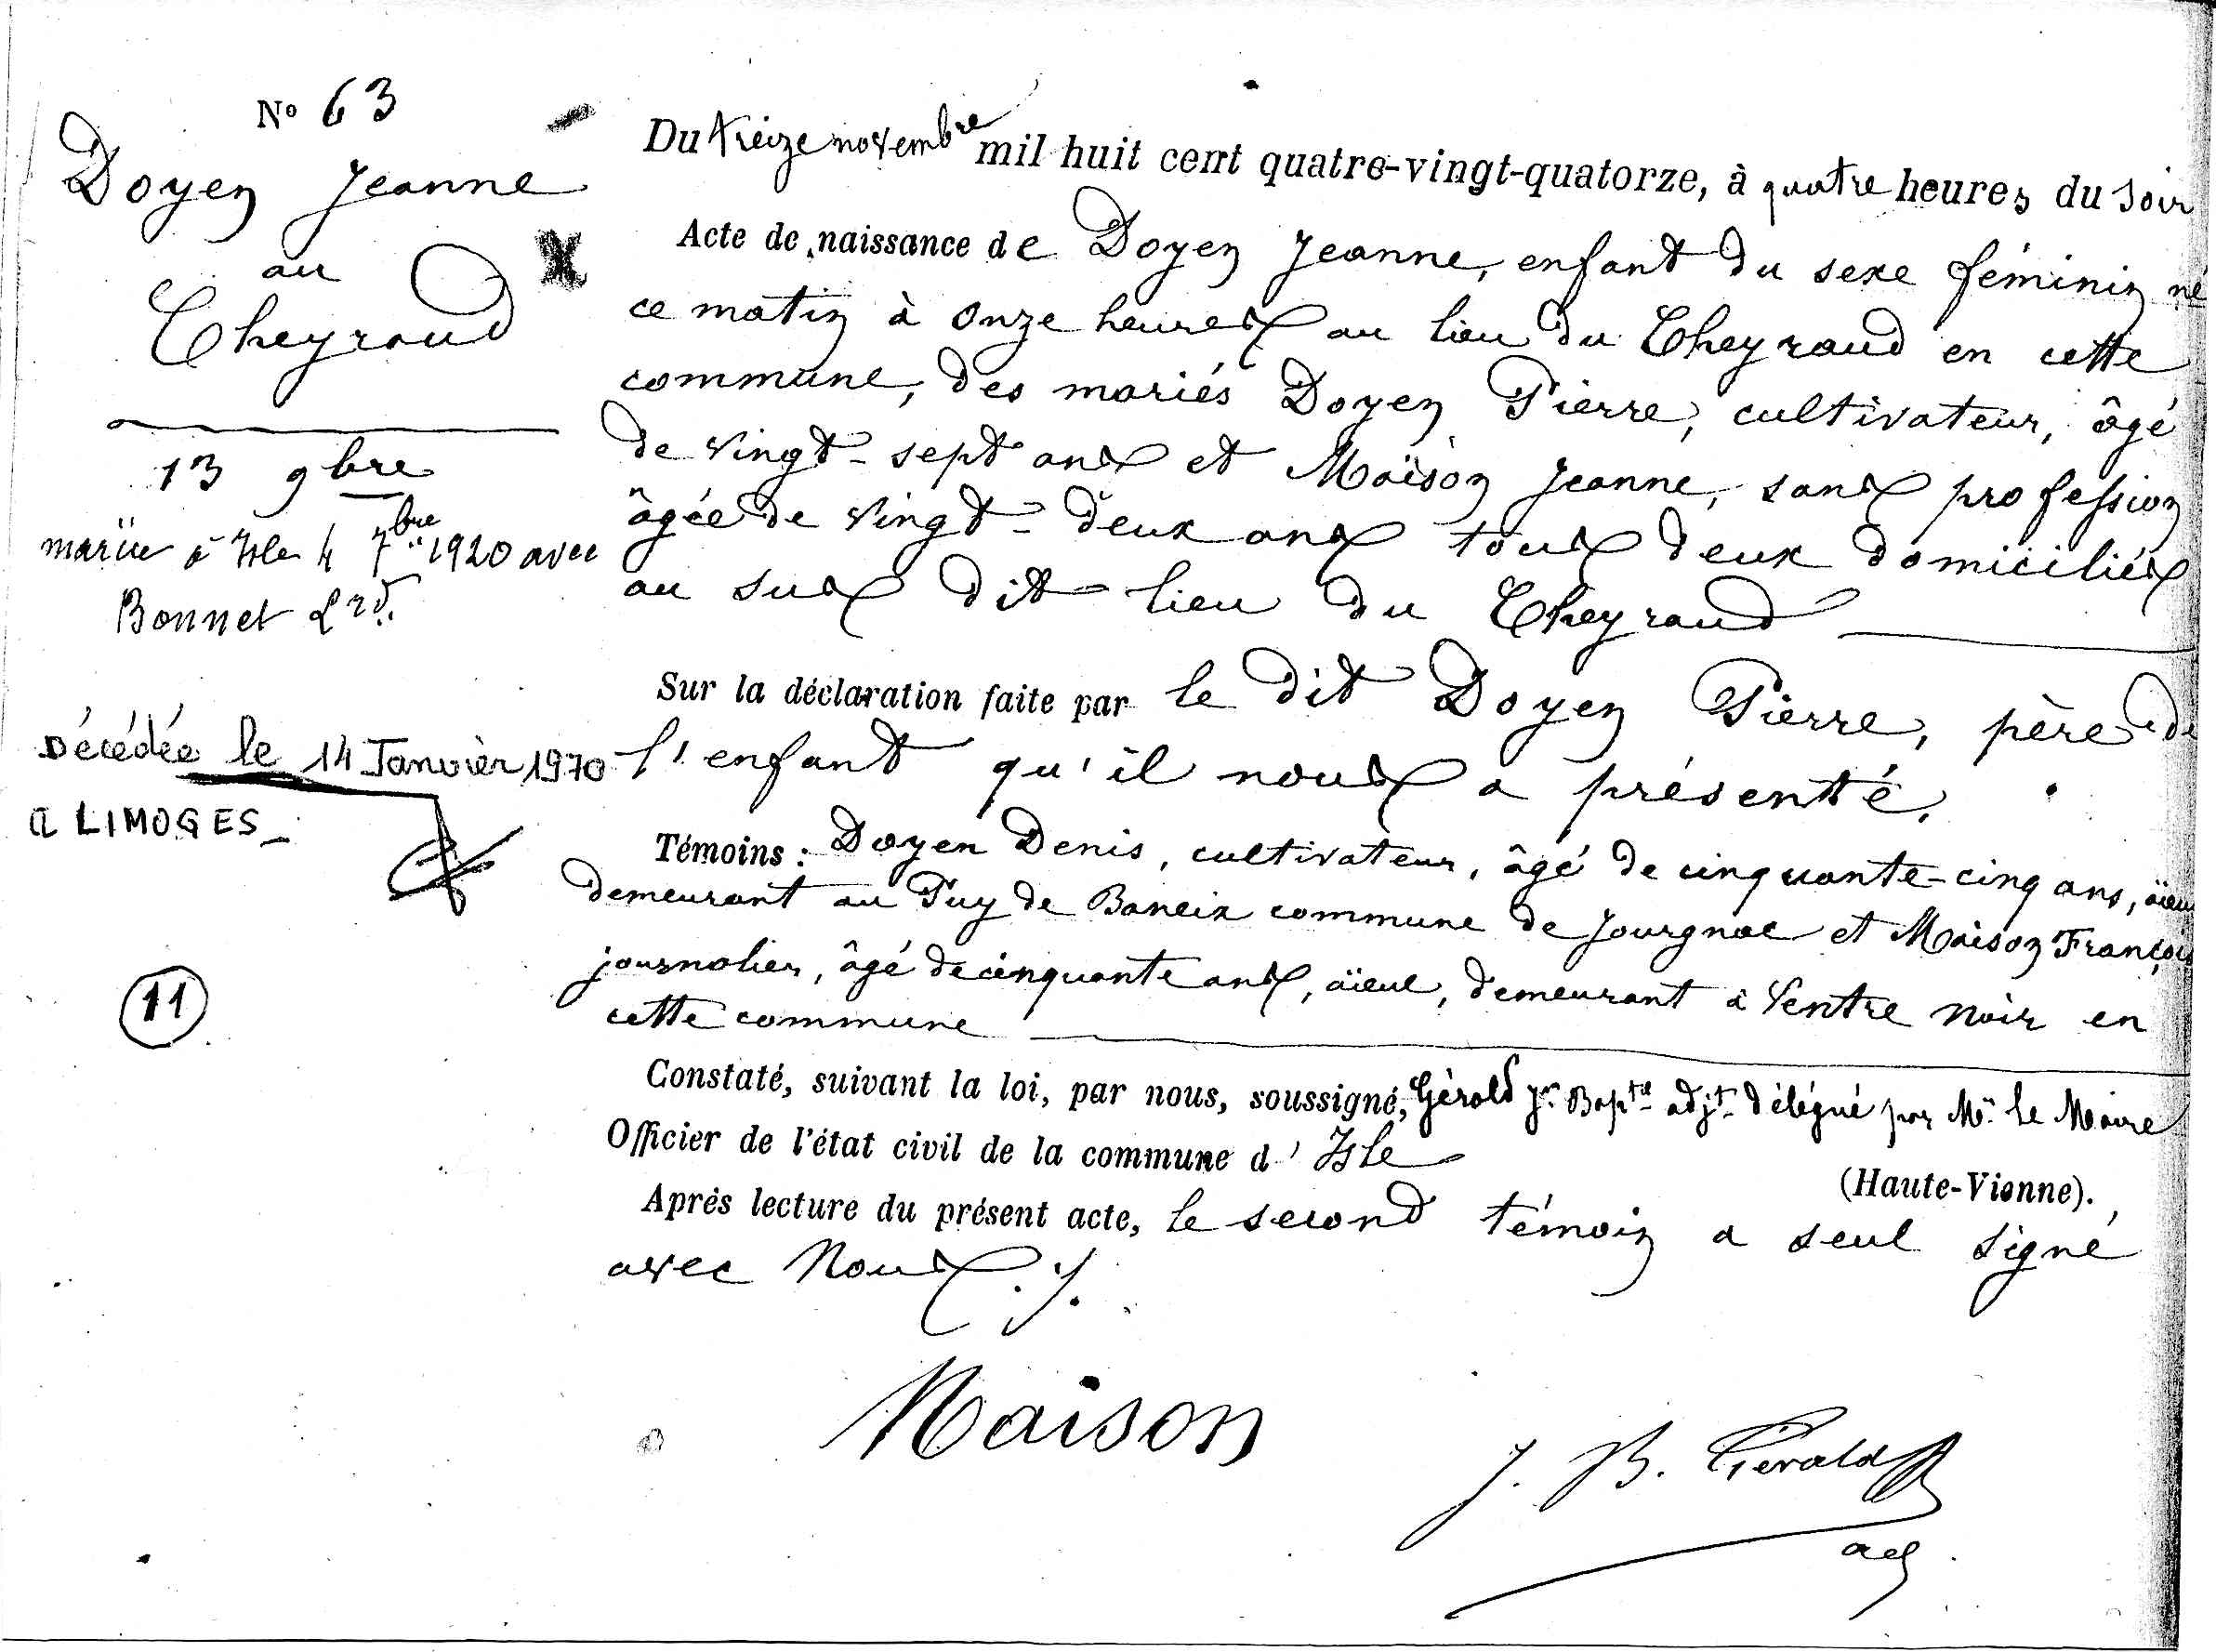 Nº 63
Doyen Jeanne
au
Theyraud
13 9bre
mariée à Isle 4 7bre 1920 avec
Bonnet Lrd.
Décédée le 14 Janvier 1970
a LIMOGES_
11
Du treize novembre mil huit cent quatre-vingt-quatorze, à quatre heures du soir
Acte de naissance de Doyen Jeanne, enfant du sexe féminin né
ce matin à onze heures au lieu du Theyraud en cette
commune, des mariés Doyen Pierre, cultivateur, âgé
de vingt-sept ans et Maison Jeanne, sans profession
âgée de vingt-deux ans tous deux domiciliés
au sus dit lieu du Theyraud
Sur la déclaration faite par le dit Doyen Pierre, père de
l'enfant qu'il nous a présenté.
Témoins : Doyen Denis, cultivateur, âgé de cinquante-cinq ans, aïeul
demeurant au Puy de Baneix commune de Jourgnac et Maison François
journalier, âgé de cinquante ans, aïeul, demeurant à Ventre noir en
cette commune
Constaté, suivant la loi, par nous, soussigné, Gérald Jn Bapte adjt délégué par Mr le Maire
Officier de l'état civil de la commune d'Isle
(Haute-Vienne).
Après lecture du présent acte, le second témoin a seul signé
avec Nous ./.
Maison
J. B. Gérald
adj